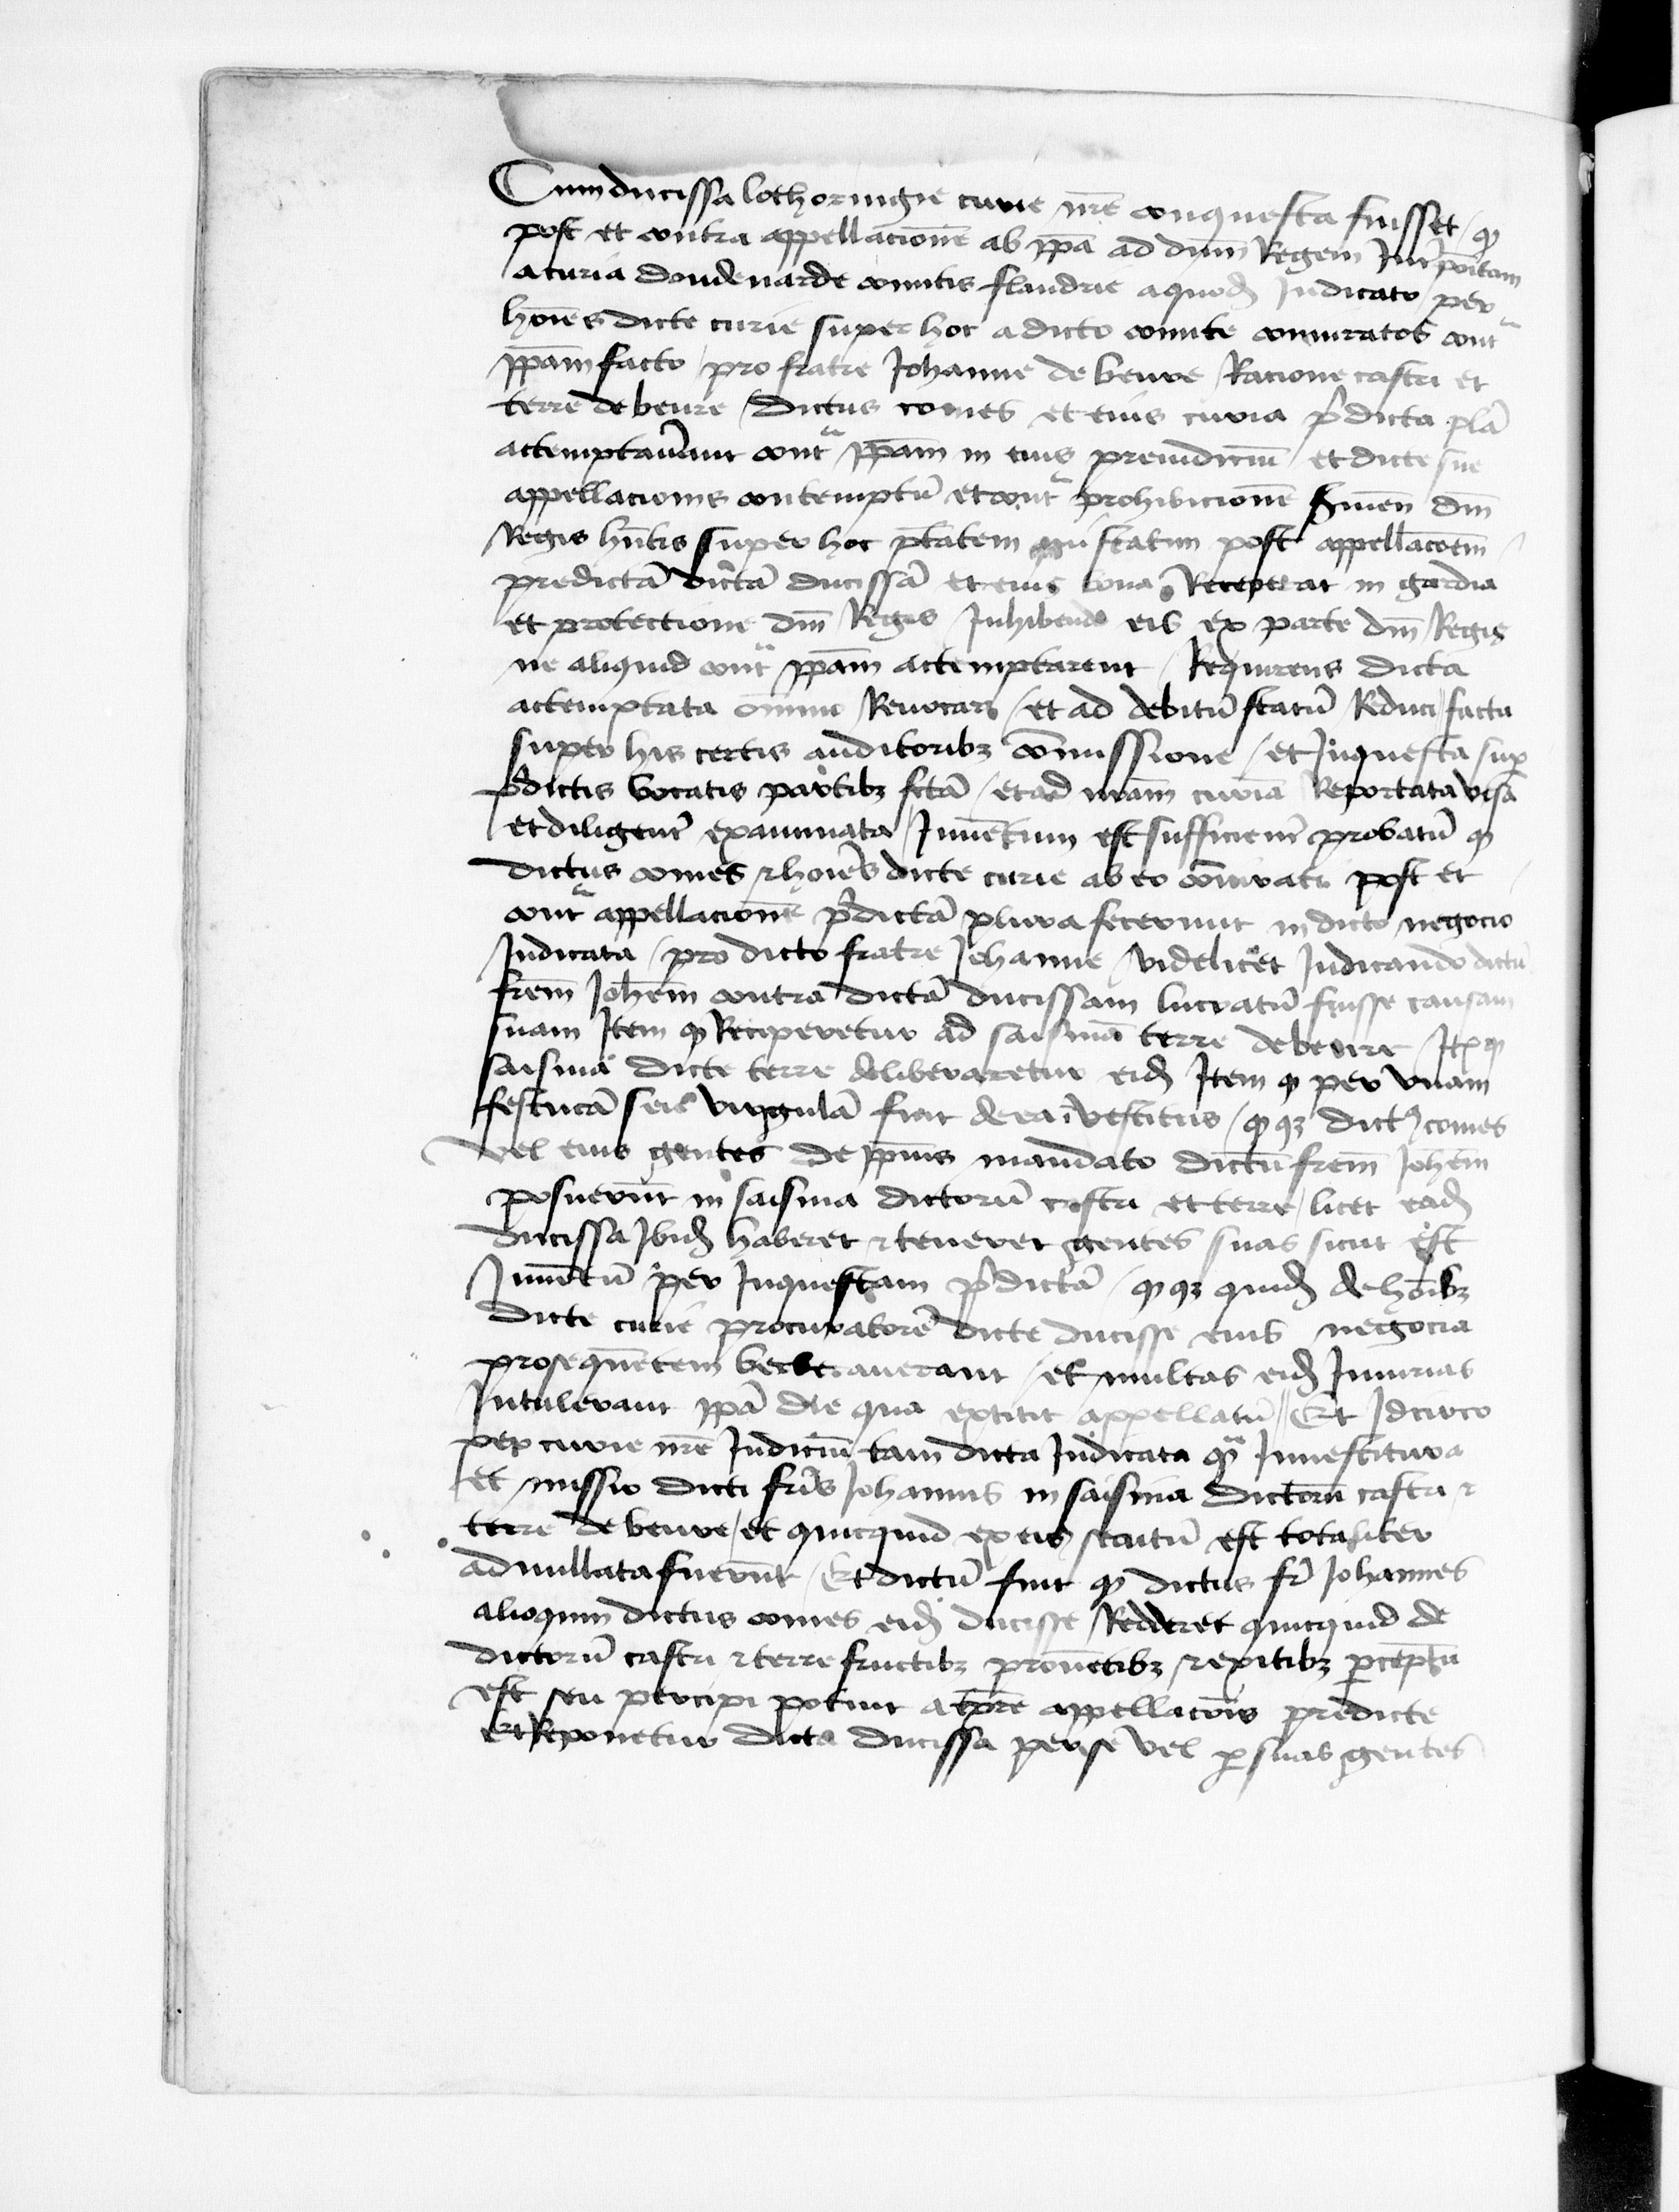 Cum ducissa lothoringie curie nr̄e conquesta fuisset / qd̄
post et contra appellacionē ab ip̄a ad dnm̄ Regem Int'poītam
a curia Dondenarde comitis flandrie a quod̄ Judicato / per
hoīes dicte curie super hoc a dicto comite coniuratos contª
ip̄am facto / pro fratre Johanne de beure / Racione castri et
terre de beure / Dictus comes et eius curia p̄dicta plā
attemptaver̄unt contª ip̄am in eius preiudiciū et dicte sue
appellacionis contemptū et contª prohibicionē dnī
Regis hn̄tis super hoc ptātem qui statim post appellacōem
predictā dictā ducissā et eius bona Receperat in gardia
et protectione dnī Regis Inhibendo eis ex parte dnī Regis
ne aliquid contª ip̄am attemptarent / Requirens dicta
attemptata om̄ino Revocari / et ad debitū statū Reduci / facta
super his certis auditoribz com̄issione / et Inquesta sup̄
p̄dictis vocatis partibz fctā / et ad nrām curiā Reportata visa
et diligent' examinata / Invētum est sufficient' probatū qd̄
dictus comes & hoīes dicte curie ab eo coniurati post et
contª appellacionē p̄dictā plura fecerunt in dicto negocio
Judicata / pro dicto fratre Johanne / videlicet Judicando dictū
frem̄ Joh̄em contra dictā ducissam lucratū fuisse causam
suam Item qd̄ Reciperetur ad saisinā terre de beure / Itē qd̄
saisina dicte terre deliberaretur eid̄ Item qd̄ per unam
festucā seu virgulā fuit de ea īvestitus / qd̄ qz dict9 comes
vel eius gentes de ip̄ius mandato dictū frem̄ Joh̄em
posuerūnt in saisina dictorū castri et terre / licet ead̄
ducissa Ibid̄ haberet & teneret gentes suas sicut est
Inuētū per Inquestam p̄dictā / qd̄ qz quid̄ de hoībz
dicte curie procuratorē dicte ducisse eius negocia
prosequētem verberauerant / et multas eid̄ Iniurias
Intulerant ip̄a die qua extitit appellatū // Et Idcirco
per curie nr̄e Judiciū tam dicta Judicata qª Inuestitura
et missio dicti fr̄is Johannis in saisina dictorū castri &
terre de beure / et quicquid ex eis secutū est totaliter
adnullata fuerūnt / Et dictū fuit qd̄ dictus fr̄ Johannes
alioquin dictus comes eid̄ ducisse Redderet quicquid de
dictorū castri & terre fructibz prouētibz & exitibz p̄ceptū
est seu percipi potuit a tp̄re appellacōis predicte
Et Reponetur dicta ducissa per se vel p̄ suas gentes